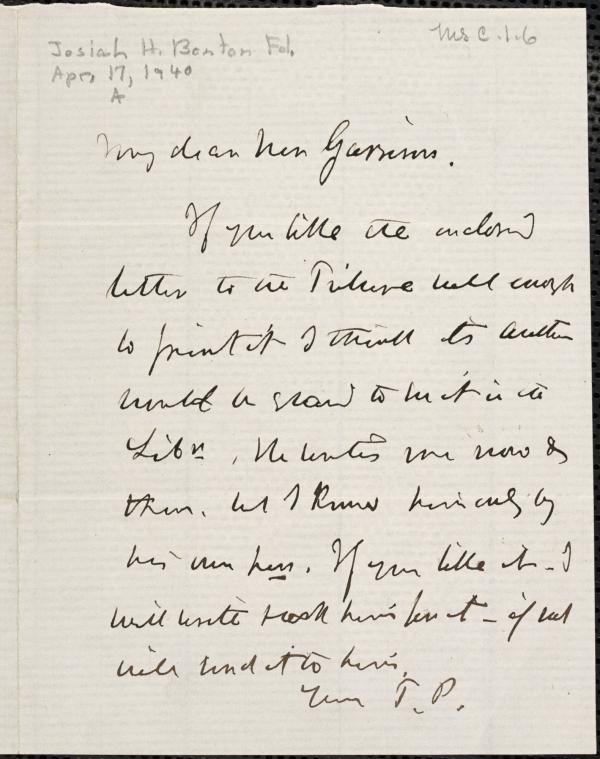 Josiah H. Benton Fd.
Apr. 17, 1940
A
Ms C.1.6
My dear Mr Garrison.
If you like the enclosed
letter to the Tribune well enough
to print it I think its author
would be glad to see it in the
Libr. He writes me now &
then, but I know him only by
his own pen. If you like it - I
will write & ask him for it - if not
will send it to him.
Yours T. P.